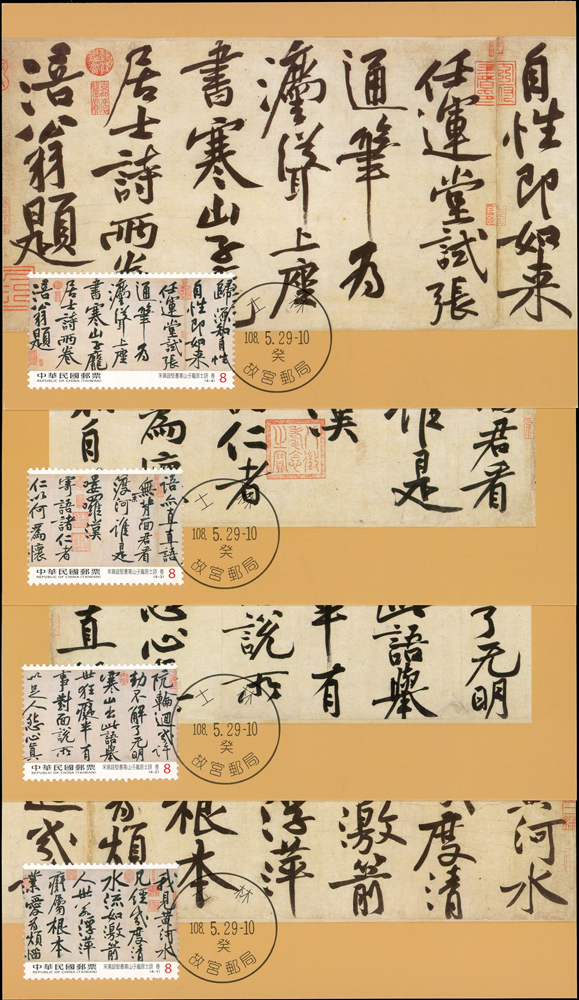 自性即如来
任運堂試張
通筆為
灋聳上座
書寒山子
居士詩兩卷
涪翁題
自性即如来
任運堂試張
通筆為
灋聳上座
書寒山子龐
居士詩兩卷
涪翁題
中華民國郵票
REPUBLIC OF CHINA (TAIWAN)
宋黃庭堅書寒山子龐居士詩 卷
(4-4)
8
士林
108.5.29-10
癸
故宮郵局
君看
誰是
漢
仁者
為
自
無背面君看
渡河誰是
嘍羅漢
寄語諸仁者
仁以何為懷
中華民國郵票
REPUBLIC OF CHINA (TAIWAN)
宋黃庭堅書寒山子龐居士詩 卷
(4-3)
8
士林
108.5.29-10
癸
故宮郵局
了无明
此語舉
半有
說所
心
直
劫不解了元明
寒山出此語舉
世狂癡半有
事對面說所
以足人怨心真
中華民國郵票
REPUBLIC OF CHINA (TAIWAN)
宋黃庭堅書寒山子龐居士詩 卷
(4-2)
8
士林
108.5.29-10
癸
故宮郵局
河水
度清
激箭
浮萍
根本
煩
我見黃河水
凡經幾度清
水流如激箭
人世若浮萍
癡屬根本
業愛為煩惱
中華民國郵票
REPUBLIC OF CHINA (TAIWAN)
宋黃庭堅書寒山子龐居士詩 卷
(4-1)
8
士林
108.5.29-10
癸
故宮郵局